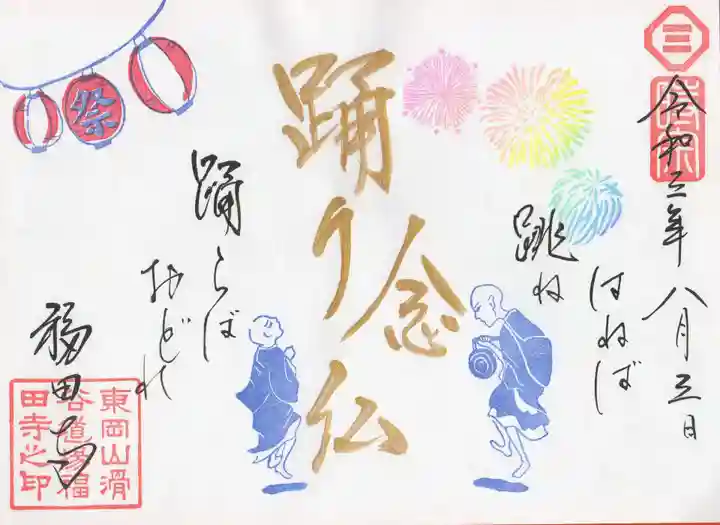 令和三年八月三日
はねば
跳ね
踊り念仏
踊らば
おどれ
福田寺
祭
三
東岡山滑
谷道場福
田寺之印